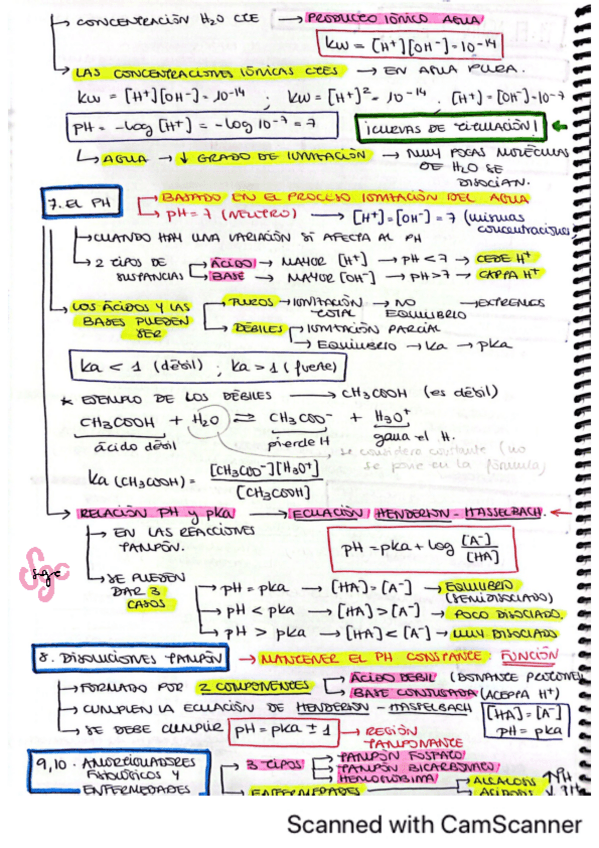 CONCENTRACIÓN H₂O CTE → PRODUCTO IÓNICO AGUA
Kw = [H⁺][OH⁻] = 10⁻¹⁴
LAS CONCENTRACIONES IÓNICAS CTES → EN AGUA PURA.
Kw = [H⁺][OH⁻] = 10⁻¹⁴ ; Kw = [H⁺]² = 10⁻¹⁴ . [H⁺] = [OH⁻] = 10⁻⁷
PH = -log [H⁺] = -log 10⁻⁷ = 7
¡CURVAS DE TITULACIÓN! ←
AGUA → ↓ GRADO DE IONIZACIÓN → MUY POCAS MOLÉCULAS
DE H₂O SE
DISOCIAN.
7. EL PH
BASADO EN EL PROCESO IONIZACIÓN DEL AGUA
PH = 7 (NEUTRO) → [H⁺] = [OH⁻] = 7 (mismas
concentraciones)
CUANDO HAY UNA VARIACIÓN SÍ AFECTA AL PH
2 TIPOS DE
SUSTANCIAS
ÁCIDO → MAYOR [H⁺] → PH < 7 → CEDE H⁺
BASE → MAYOR [OH⁻] → PH > 7 → CAPTA H⁺
LOS ÁCIDOS Y LAS
BASES PUEDEN
SER
PUROS → IONIZACIÓN TOTAL → NO EQUILIBRIO → EXTREMOS
DÉBILES → IONIZACIÓN PARCIAL
→ EQUILIBRIO → Ka → pKa
Ka < 1 (débil) ; Ka > 1 (fuerte)
* EJEMPLO DE LOS DÉBILES → CH₃COOH (es débil)
CH₃COOH + H₂O ⇌ CH₃COO⁻ + H₃O⁺
ácido débil pierde H gana el H.
se considera constante (no
se pone en la fórmula)
Ka (CH₃COOH) = [CH₃COO⁻][H₃O⁺]
[CH₃COOH]
RELACIÓN PH y pKa → ECUACIÓN HENDERSON-HASSELBACH. ←
EN LAS REACCIONES
TAMPÓN.
pH = pKa + log [A⁻]
[HA]
SE PUEDEN
DAR 3
CASOS
pH = pKa → [HA] = [A⁻] → EQUILIBRIO
(SEMIDISOCIADO)
pH < pKa → [HA] > [A⁻] → POCO DISOCIADO.
pH > pKa → [HA] < [A⁻] → MUY DISOCIADO
Sgc
8. DISOLUCIONES TAMPÓN → MANTENER EL PH CONSTANTE: FUNCIÓN
FORMADO POR 2 COMPONENTES
ÁCIDO DÉBIL (DONANTE PROTONES)
BASE CONJUGADA (ACEPTA H⁺)
CUMPLEN LA ECUACIÓN DE HENDERSON-HASSELBACH
[HA] = [A⁻]
PH = pKa
SE DEBE CUMPLIR PH = pKa ± 1 → REGIÓN
TAMPONANTE
9,10. AMORTIGUADORES
FISIOLÓGICOS Y
ENFERMEDADES
3 TIPOS
TAMPÓN FOSFATO
TAMPÓN BICARBONATO
HEMOGLOBINA
ENFERMEDADES
ALCALOSIS ↑PH
ACIDOSIS ↓PH
Scanned with CamScanner